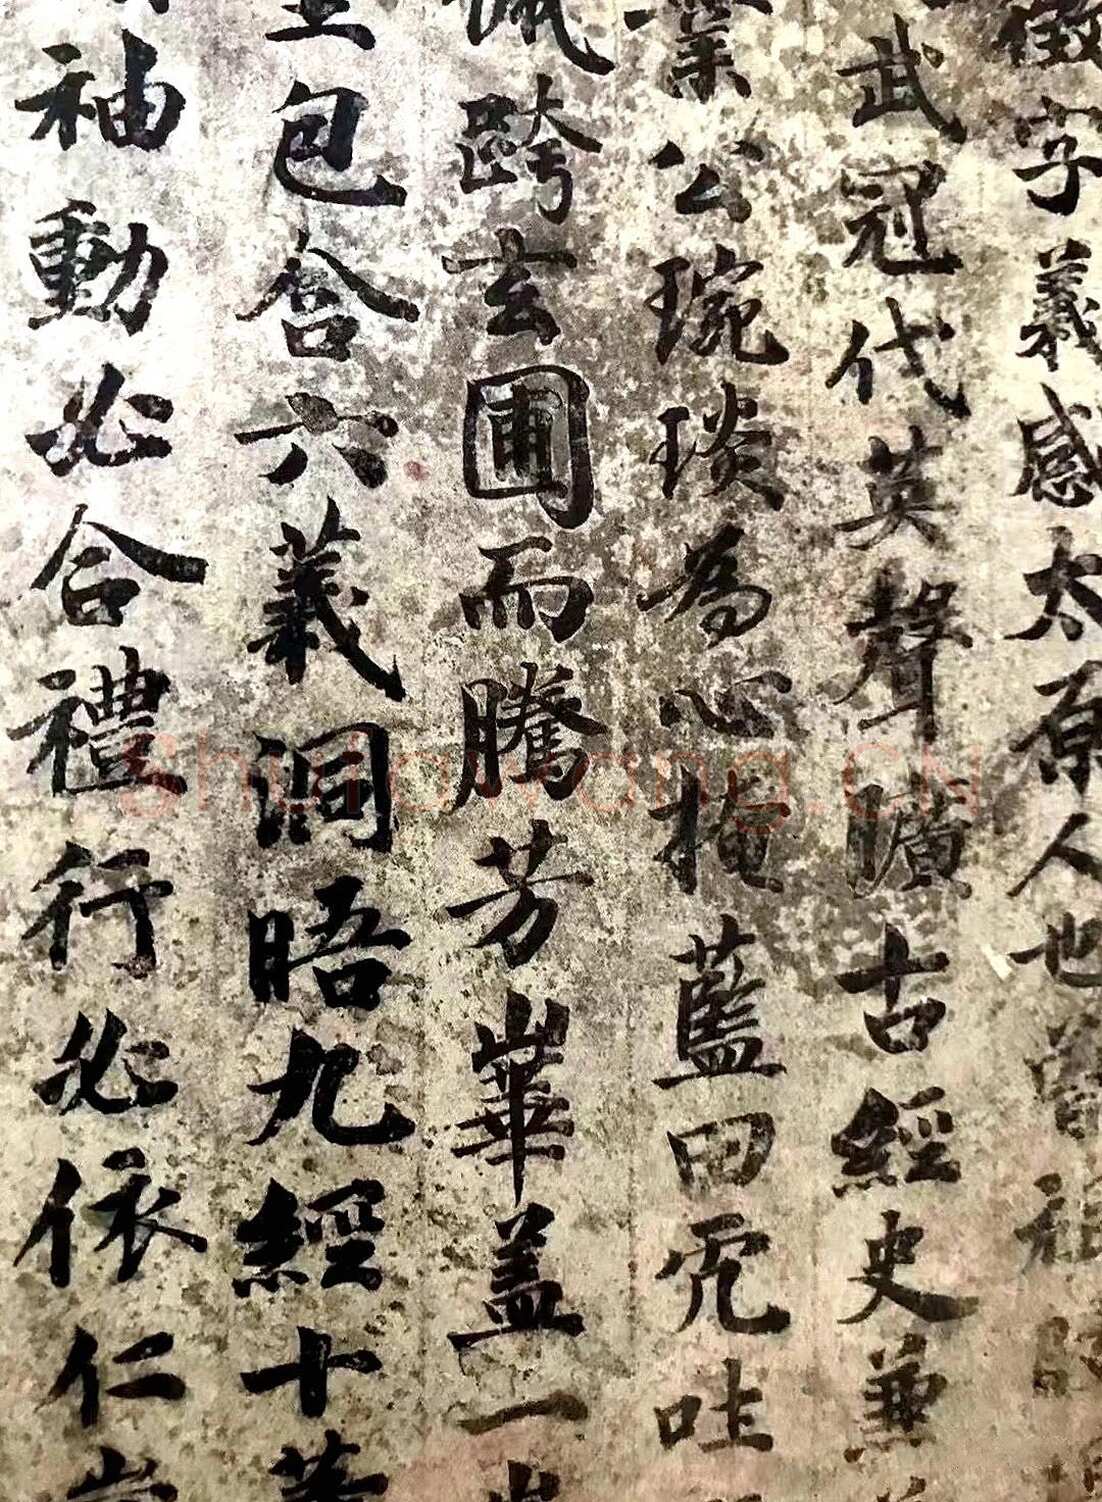 徵字義感太原人也曾祖
武冠代英聲曠古經史兼
業公琬琰為心掩藍田
珮跨玄圃而騰芳崋蓋一
包含六義洞晤九經十
袖動必合禮行必依仁
Shufawang.CN